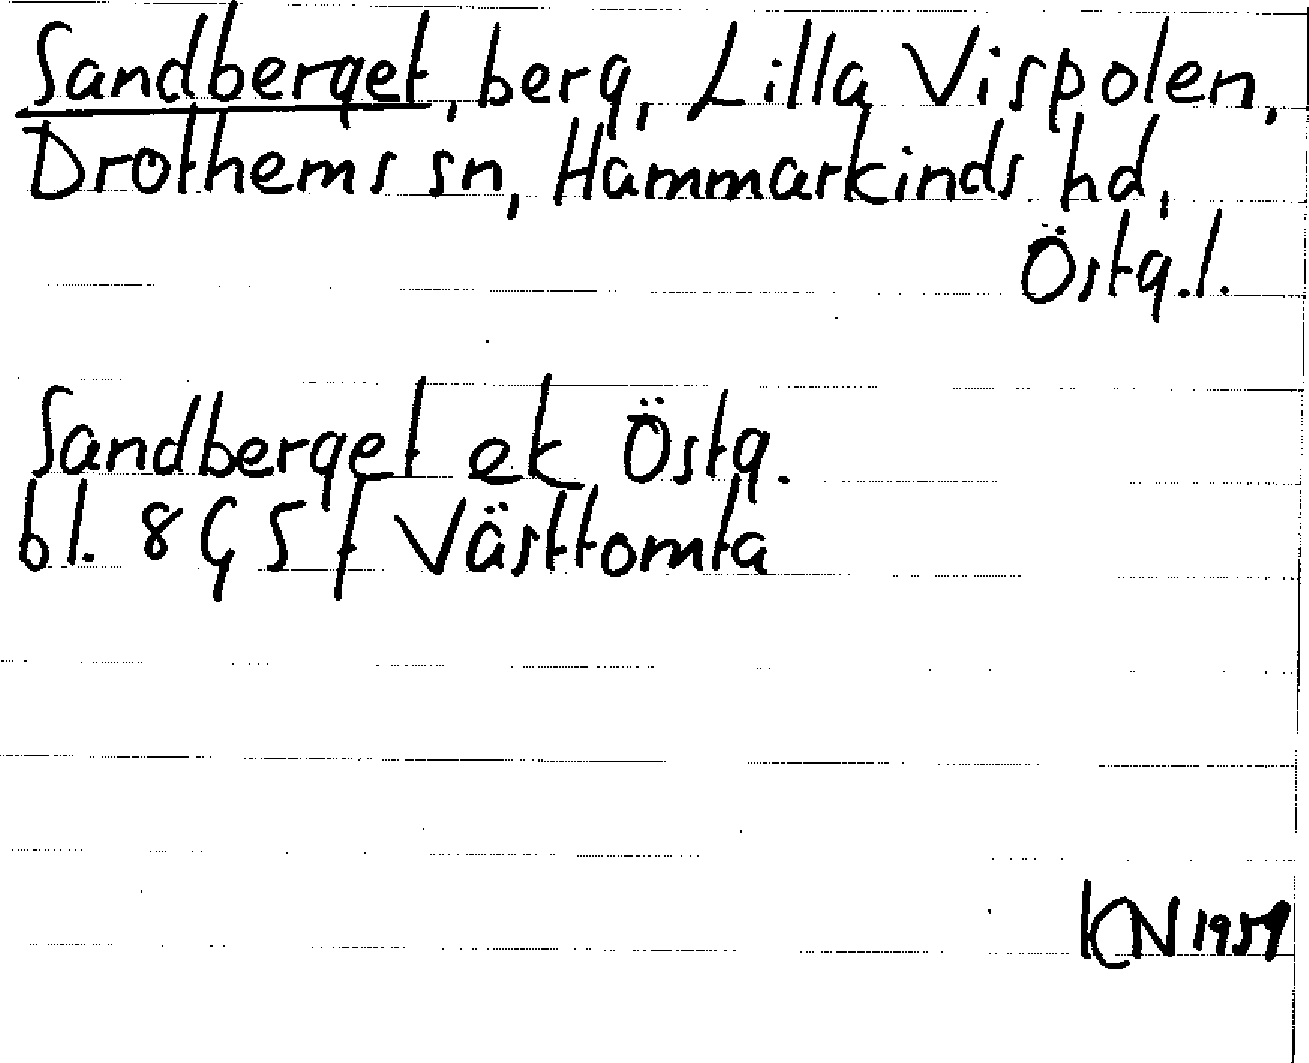 Sandberget, berg, Lilla Vispolen,
Drothems sn, Hammarkinds hd,
Östg.l.
Sandberget ek Östg.
bl. 8G5f Västtomta
KN 1951